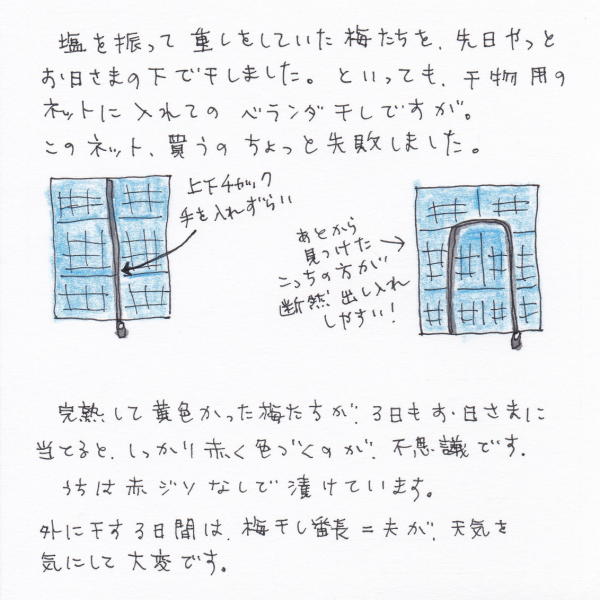 塩を振って重しをしていた梅たちを、先日やっと
お日さまの下で干しました。といっても、干物用の
ネットに入れてのベランダ干しですが。
このネット、買うのちょっと失敗しました。
上下チャック
手を入れずらい
あとから
見つけた
こっちの方が
断然出し入れ
しやすい!
完熟して黄色かった梅たちが、3日もお日さまに
当てると、しっかり赤く色づくのが、不思議です。
うちは赤ジソなしで漬けています。
外に干す3日間は、梅干し番長=夫が、天気を
気にして大変です。